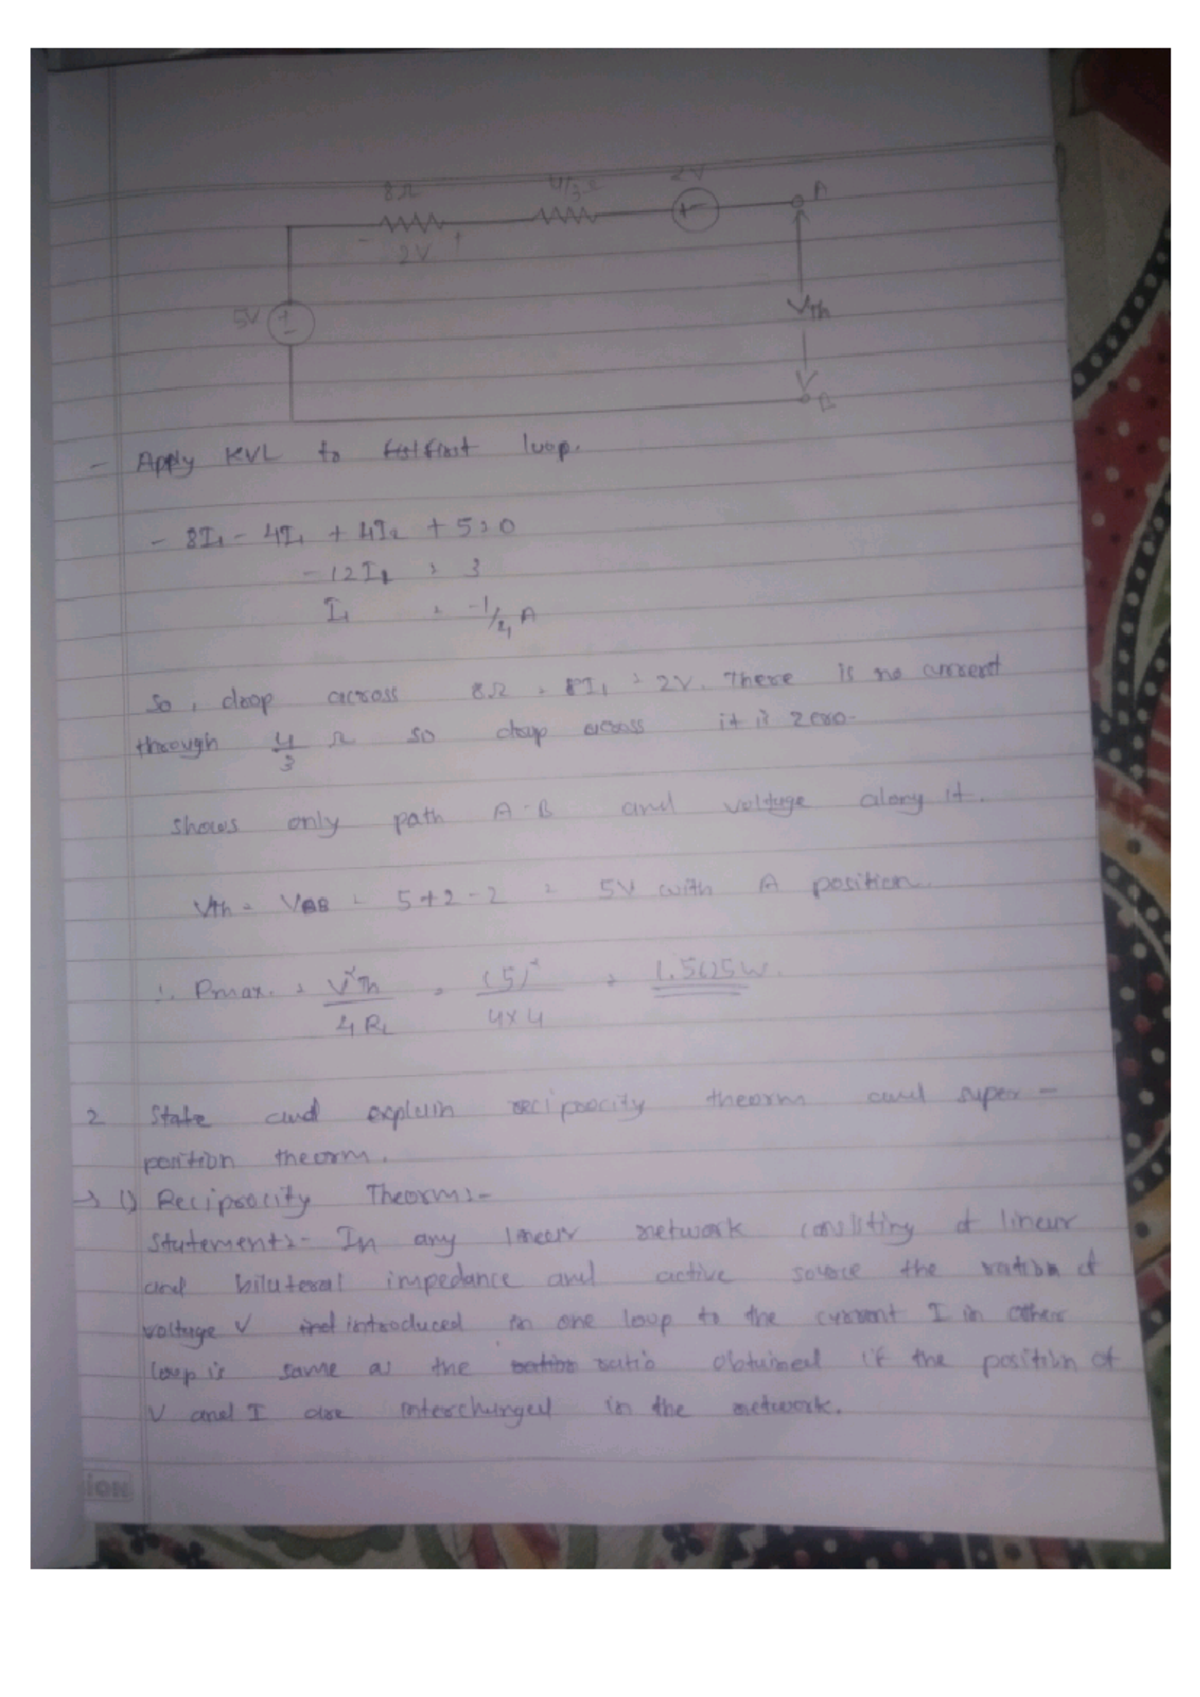 8Ω 4/3 Ω 2V A
- 2V +
5V + - Vth
B
- Apply KVL to first loop.
- 8I₁ - 4I₁ + 4I₂ + 5 = 0
- 12I₁ = 3
I₁ = -1/4 A
So, drop across 8Ω = 8I₁ = 2V. There is no current
through 4/3 Ω so drop across it is zero.
shows only path A-B and voltage along it.
Vth = VAB = 5+2-2 = 5V with A position.
∴ Pmax. = V²Th / 4RL = (5)² / 4x4 = 1.5625W.
2 State and explain reciprocity theorm and super -
position theorm.
→ 1) Reciprocity Theorm:-
Statement:- In any linear network consisting of linear
and bilateral impedance and active source the ration of
voltage V introduced in one loop to the current I in other
loop is same as the ratio obtained if the position of
V and I are interchanged in the network.
ion